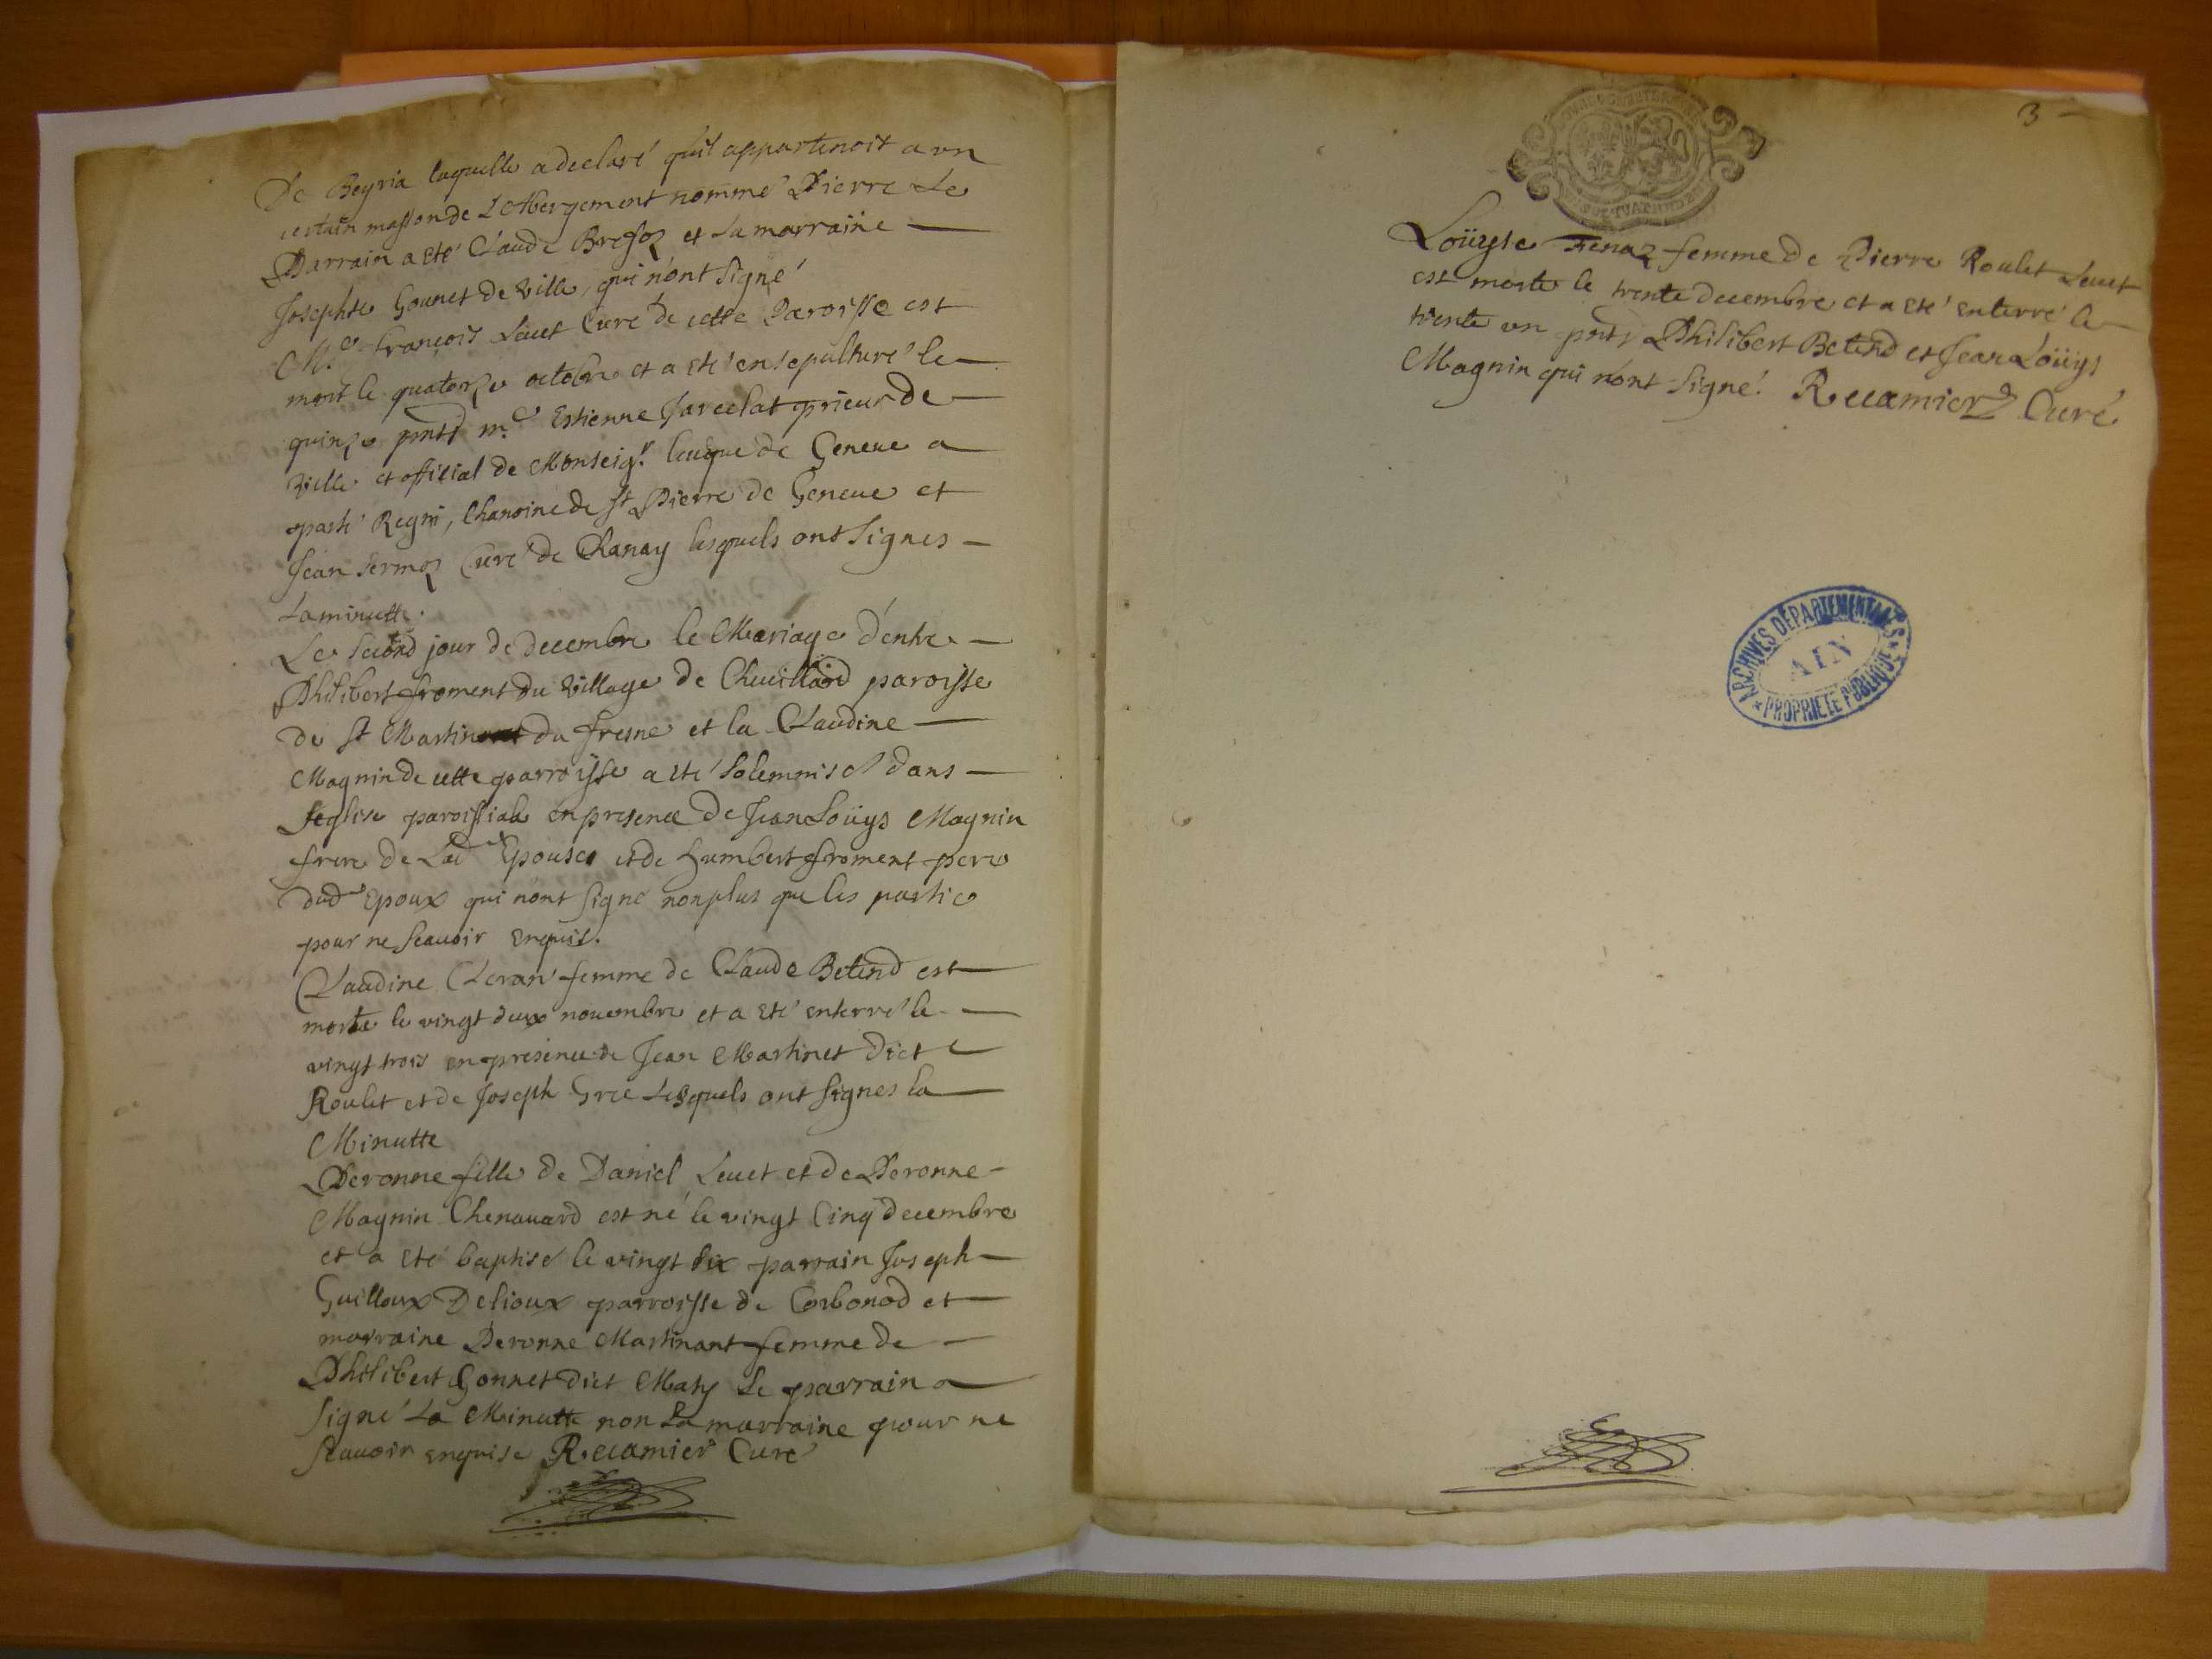 De Beyria laquelle a declaré quil appartenoit a un
certain masson de L'Abergement nommé Pierre Le
Parrain a eté Claude Bresoz et La marraine
Josephte Gounet de Ville, qui n'ont Signé
M.e François Leuet Curé de cette Paroisse est
mort le quatorze octobre et a eté ensepulturé le
quinze pnts m.e Estienne Jarcelat prieur de
Ville et official de Monseig.r leuque de Geneue a
parti Regni, Chanoine de St Pierre de Geneue et
Jean Sermoz Curé de Chanay lesquels ont Signes
La minutte.
Le Second jour de decembre le Mariage d'entre
Philibert froment du Village de Cheuillard paroisse
de St Martin du fresne et la Claudine
Magnin de cette parroisse a eté Solemnisé dans
l'eglise paroissiale en presence de Jean Loüys Magnin
frere de Lad Epouse et de humbert froment pere
dud Epoux qui n'ont signé non plus que les partie
pour ne Scauoir Enquis.
Claudine femme de Claude Betend est
morte le vingt deux nouembre et a eté enterré le
vingt trois en presence de Jean Martinet dict
Roulet et de Joseph Gree Lesquels ont Signes la
Minutte
Peronne fille de Daniel Leuet et de Peronne
Magnin Chenauard est né le vingt Cinq decembre
et a eté baptisé le vingt six parrain Joseph
Guilloux Delioux parroisse de Corbonod et
marraine Peronne Martinant femme de
Philibert Gonnet dict Maty Le parrain a
Signé La Minutte non La marraine pour ne
Scauoir enquise Recamier Curé
3
Loüyse Fenaz femme de Pierre Roulet Leuet
est morte le trente decembre et a eté enterré le
trente un pnts Philibert Betend et Jean Loüys
Magnin qui n'ont Signé. Recamier Curé
ARCHIVES DÉPARTEMENTALES
AIN
PROPRIÉTÉ PUBLIQUE